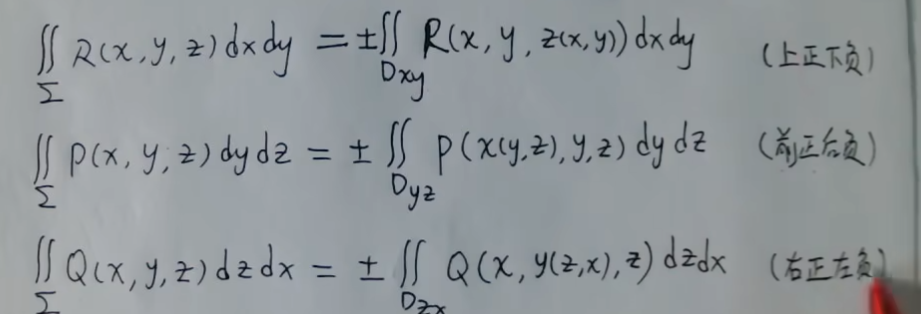 ∬_Σ R(x,y,z)dxdy = ±∬_Dxy R(x,y,z(x,y))dxdy (上正下负)
∬_Σ P(x,y,z)dydz = ±∬_Dyz P(x(y,z),y,z)dydz (前正后负)
∬_Σ Q(x,y,z)dzdx = ±∬_Dzx Q(x,y(z,x),z)dzdx (右正左负)